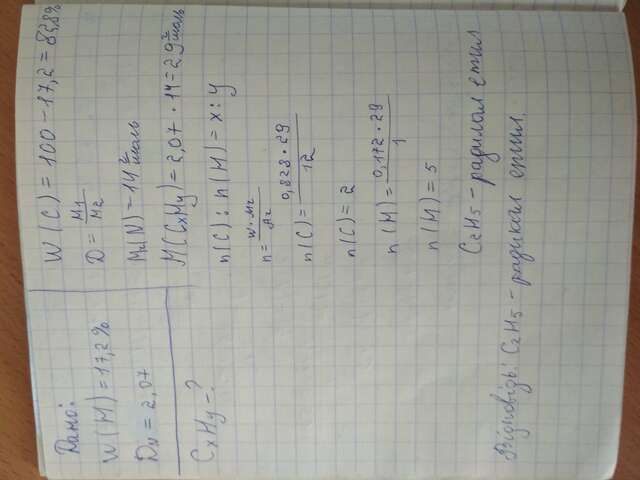 Дано:
W(H) = 17,2%
DN = 2,07
CxHy - ?
W(C) = 100 - 17,2 = 82,8%
D = M1/M2
Mr(N) = 14 г/моль
M(CxHy) = 2,07 · 14 = 29 г/моль
n(C) : n(H) = x : y
n = w·Mr/Ar
n(C) = 0,828 · 29/12
n(C) = 2
n(H) = 0,172 · 29/1
n(H) = 5
C2H5 - радикал етил
Відповідь: C2H5 - радикал етил.